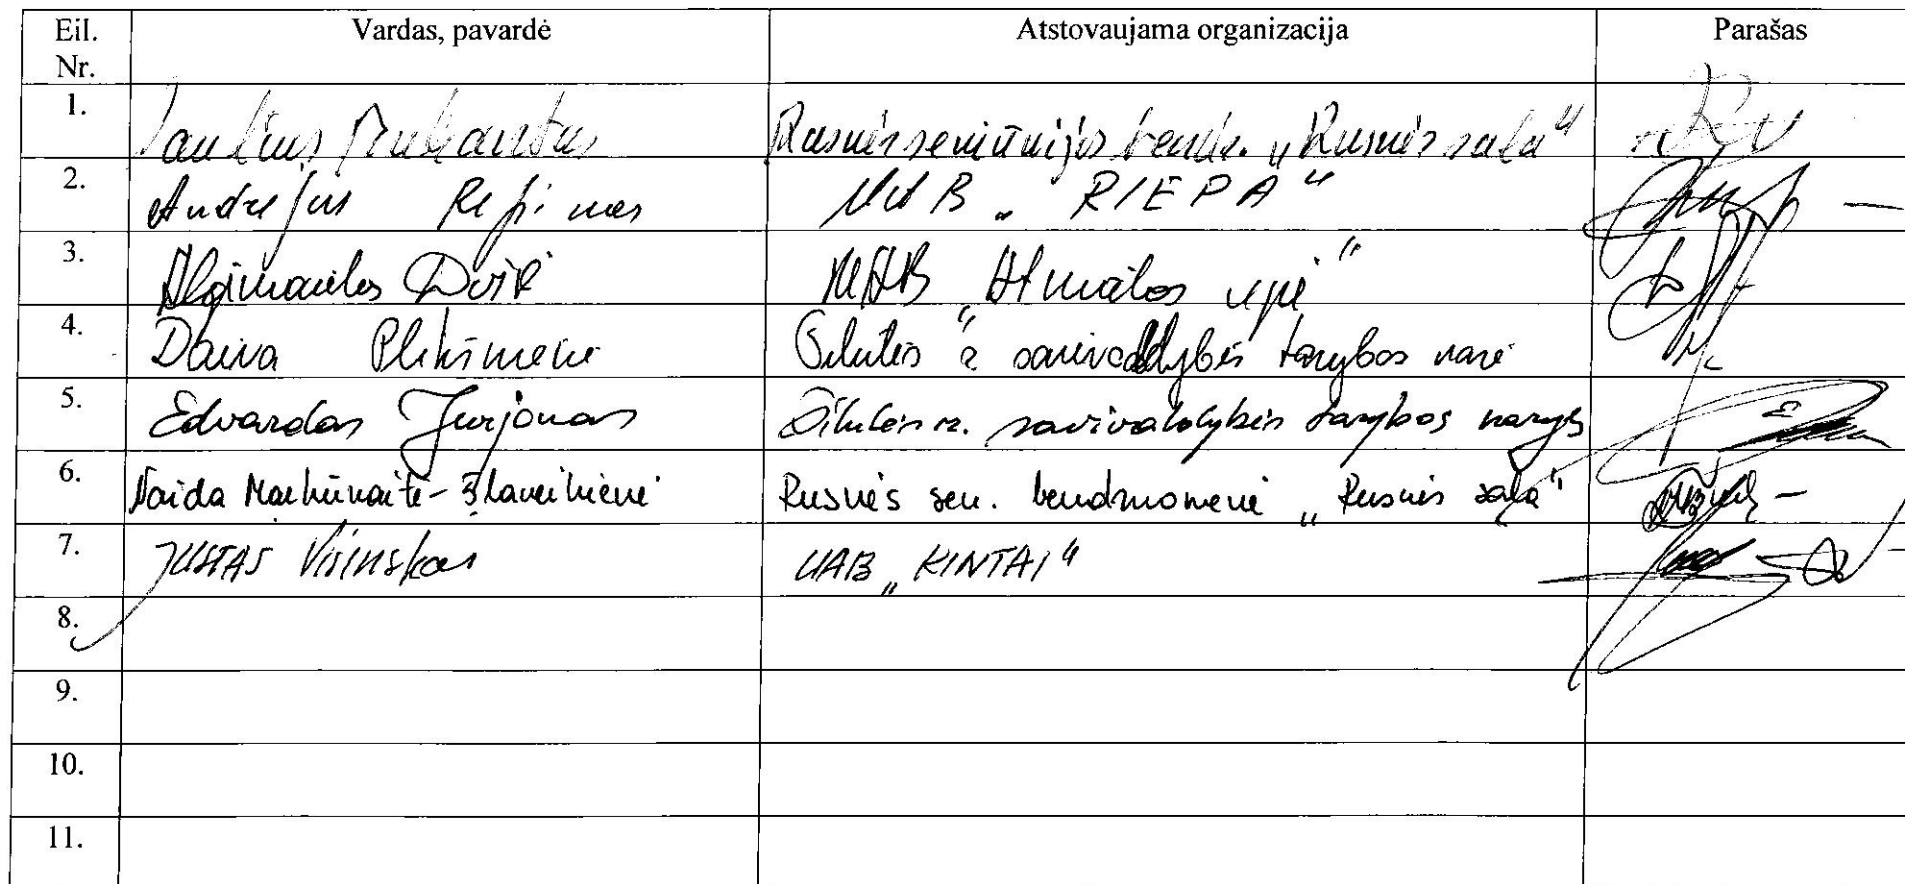 Eil. Nr. Vardas, pavardė Atstovaujama organizacija Parašas
1. Rusnės seniūnijos bendr. „Rusnės sala"
2. Andrejus Repinas UAB „RIEPA"
3. Algimantas UAB „Atmatos upė"
4. Daiva Šilutės r. savivaldybės tarybos narė
5. Edvardas Jurjonas Šilutės r. savivaldybės tarybos narys
6. Rusnės sen. bendruomenė „Rusnės sala"
7. JUSTAS Visinskas UAB „KINTAI"
8.
9.
10.
11.